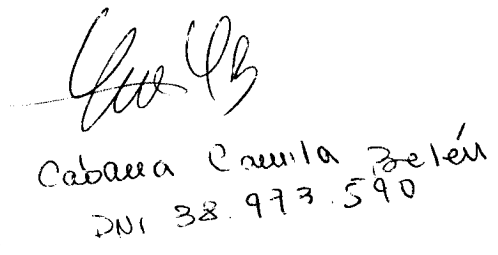 Cabana Camila Belén
DNI 38.973.590